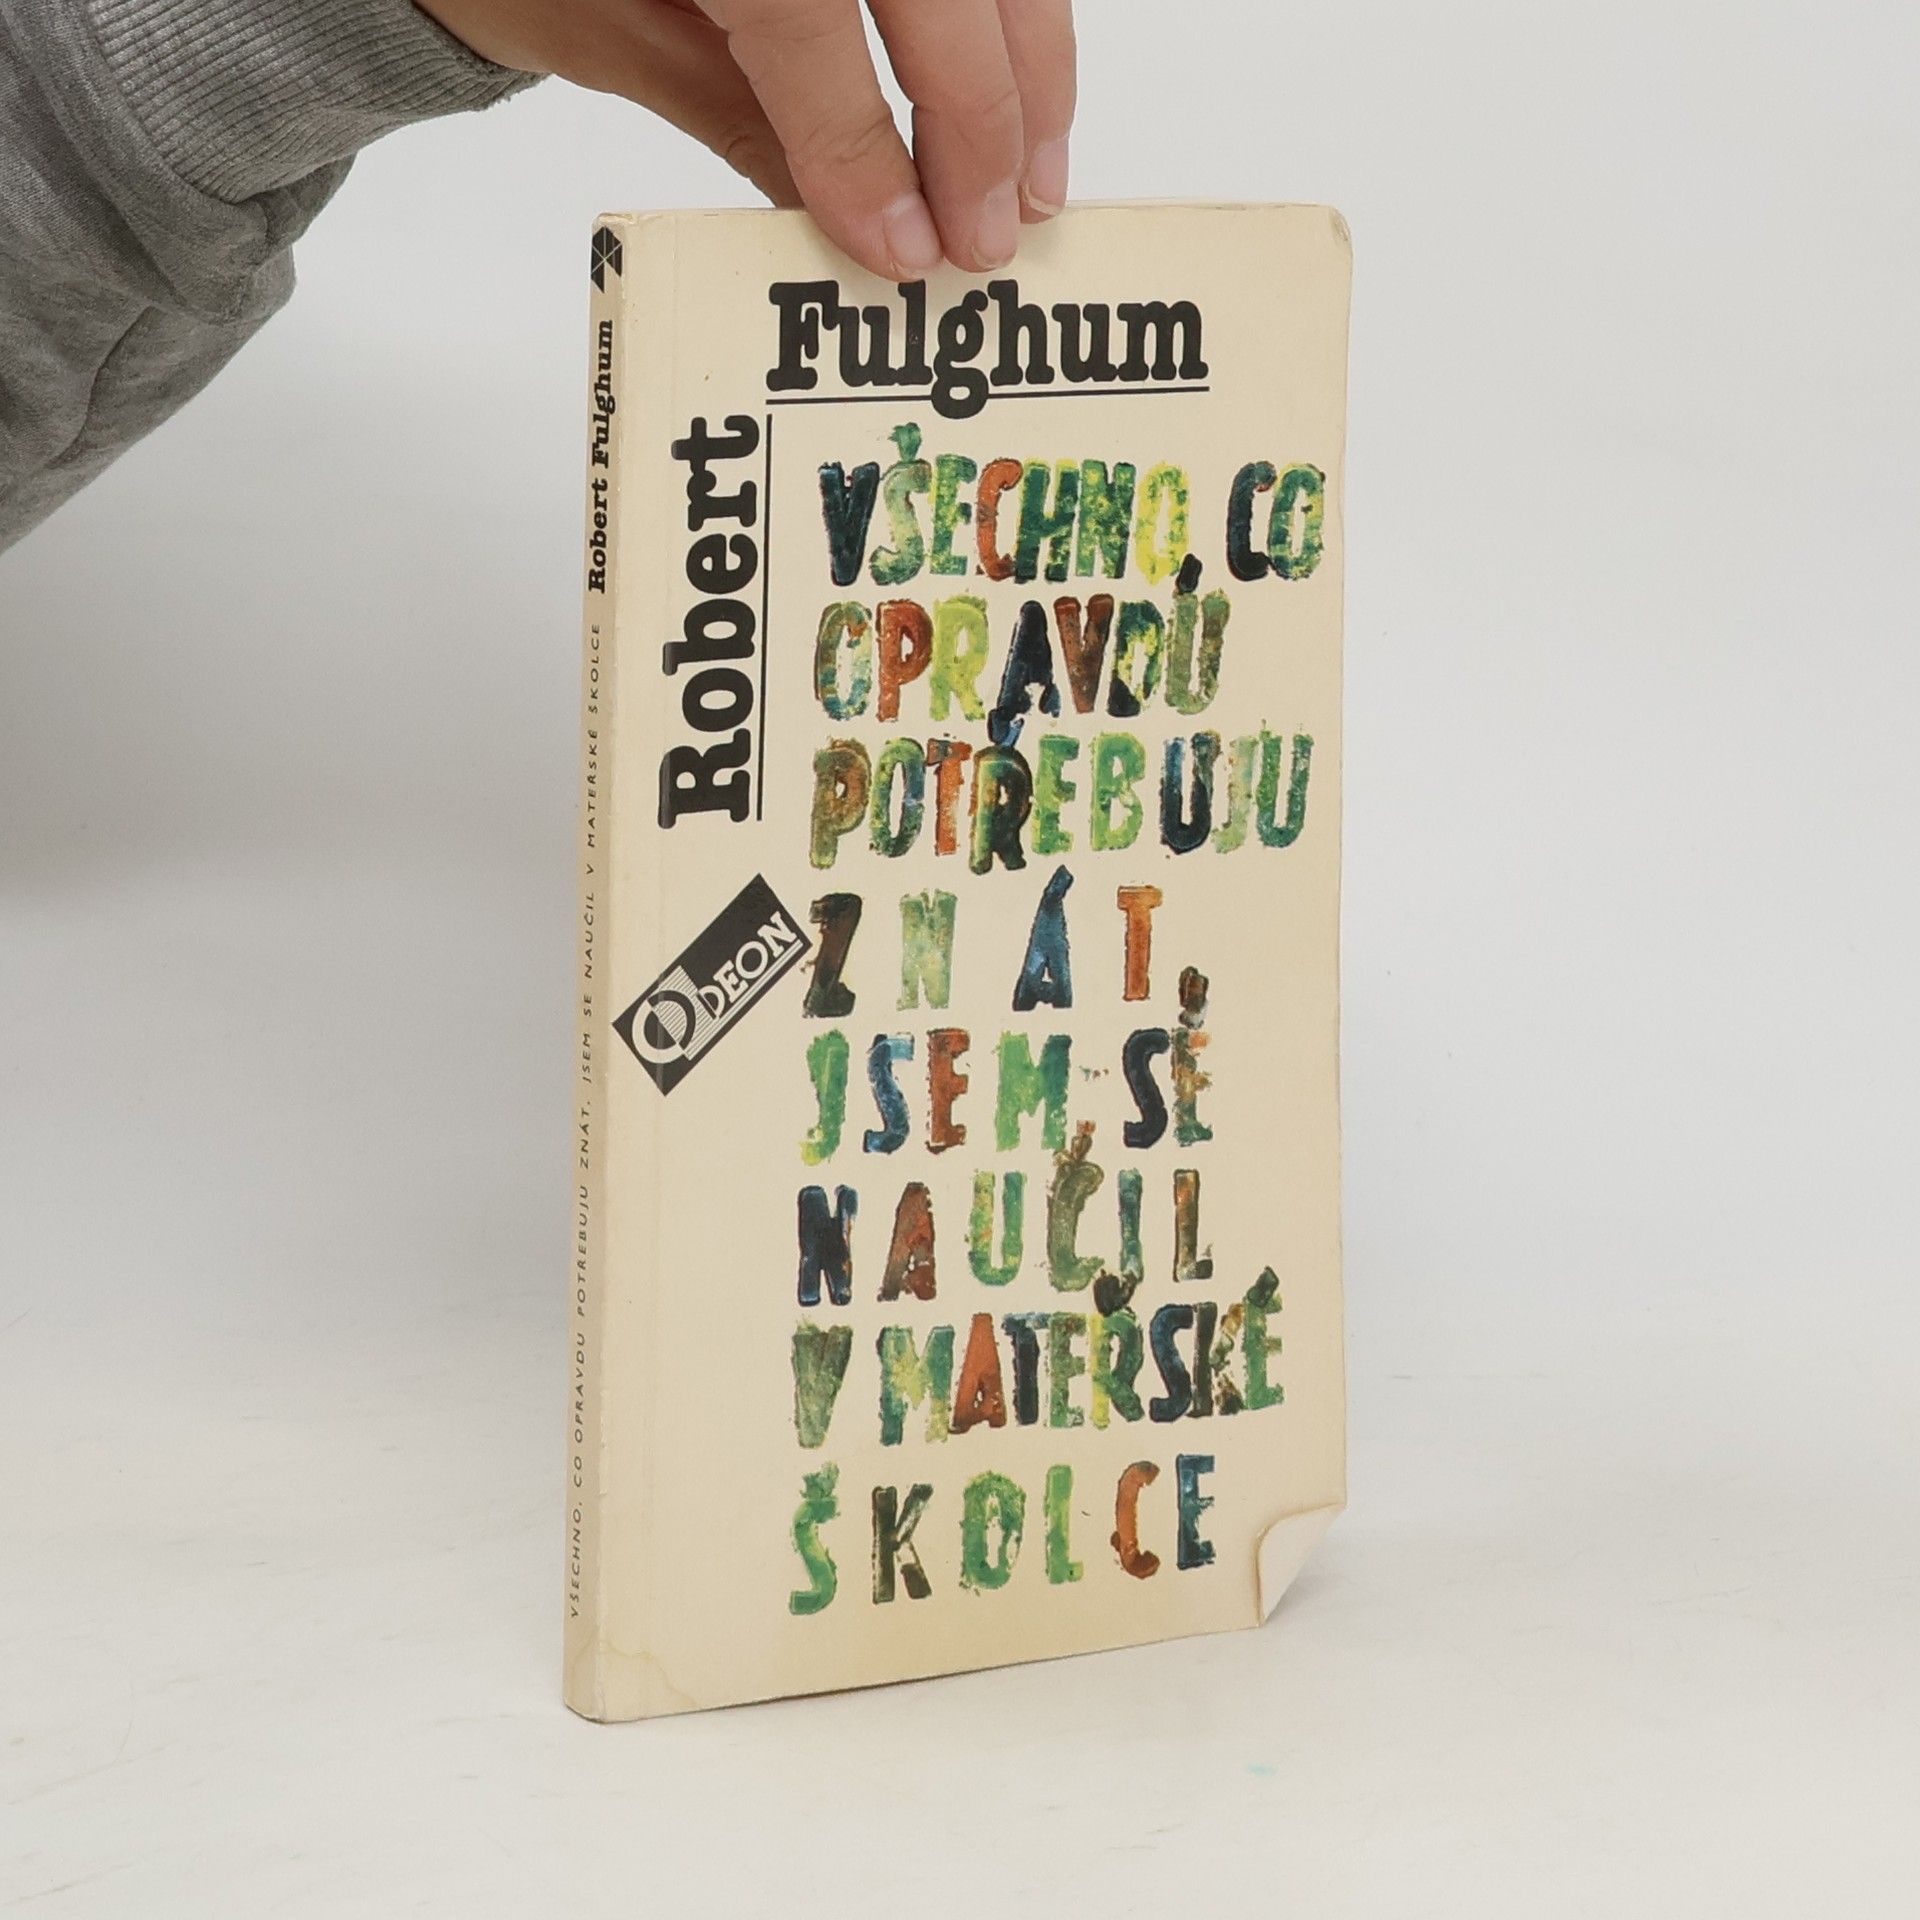 Robert Fulghum
VŠECHNO, CO
OPRAVDU
POTŘEBUJU
ZNÁT,
JSEM SE
NAUČIL
V MATEŘSKÉ
ŠKOLCE
ODEON
Robert Fulghum
VŠECHNO, CO OPRAVDU POTŘEBUJU ZNÁT, JSEM SE NAUČIL V MATEŘSKÉ ŠKOLCE